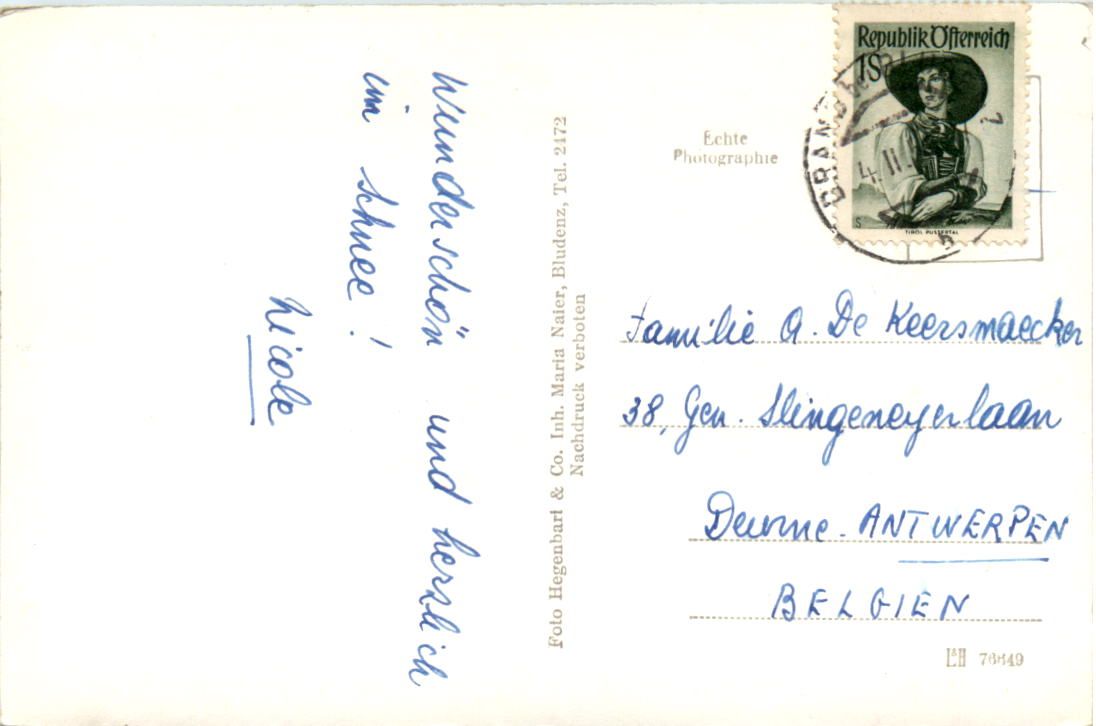 Wunderschön und herzlich
im Schnee!
Nicole
Foto Hegenbart & Co. Inh. Maria Naier, Bludenz, Tel. 2172
Nachdruck verboten
Echte
Photographie
Republik Österreich
1S
TIROL PUSTERTAL
S
BRAND
4. II.
Familie A. De Keersmaecker
38, Gen. Slingeneyerlaan
Deurne-ANTWERPEN
BELGIEN
76649